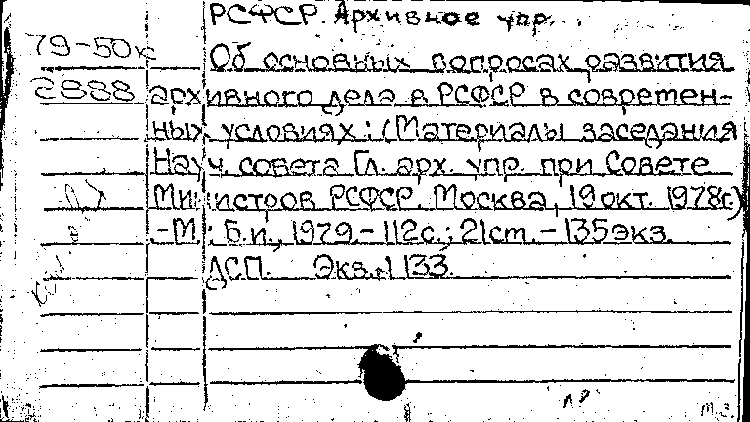 РСФСР. Архивное упр.
79-50к Об основных вопросах развития
2888 архивного дела в РСФСР в современ-
ных условиях: (Материалы заседания
Науч. совета Гл. арх. упр. при Совете
Министров РСФСР. Москва, 19 окт. 1978г.)
.-М.: Б.и., 1979.- 112с.; 21ст. - 135экз.
ДСП. Экз. 133.